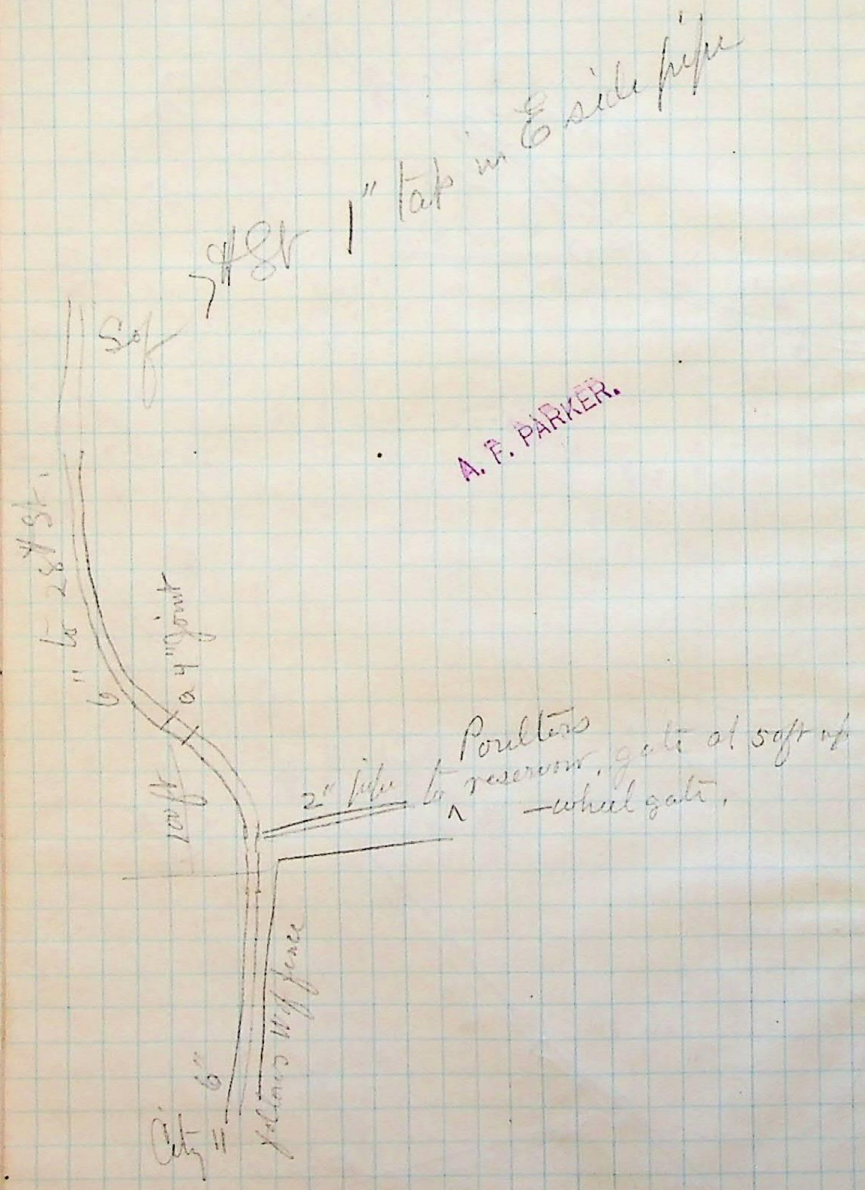 1" tap in E side pipe
St
S of
A. F. PARKER.
6" to 28th St.
a 4" joint
100 ft
2" pipe to Poulters reservoir, gate at 50 ft up
—wheel gate.
follows W of fence
6"
City